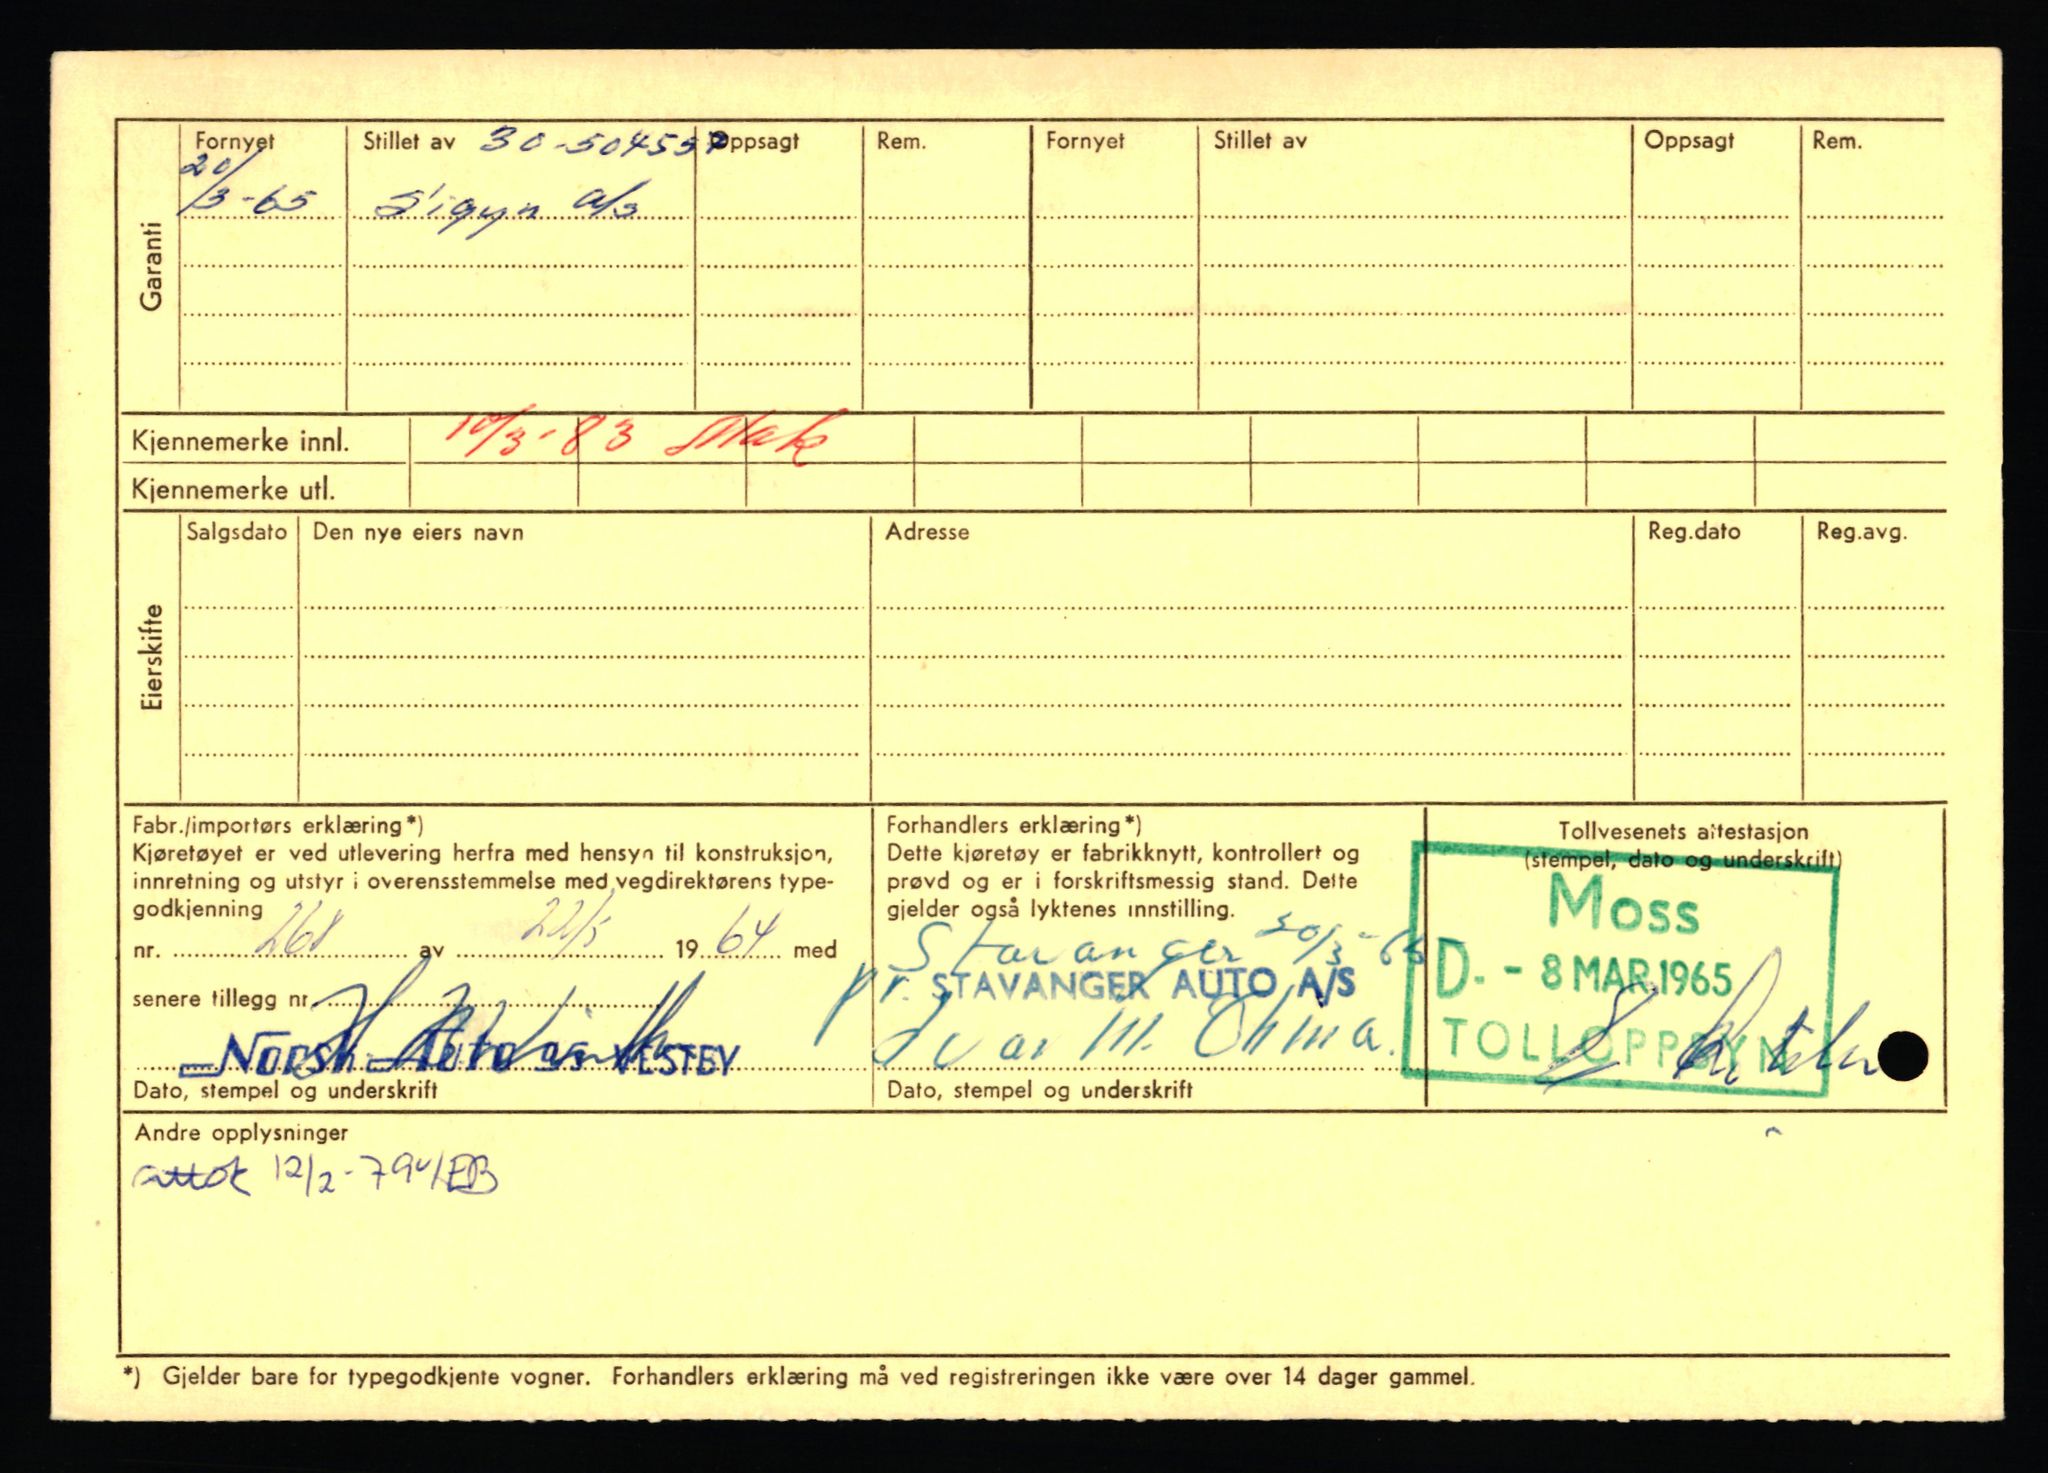 Garanti
Fornyet Stillet av 30-504557 Oppsagt Rem. Fornyet Stillet av Oppsagt Rem.
20/3-65 Sigyn a/s
Kjennemerke innl. 10/3-83
Kjennemerke utl.
Eierskifte
Salgsdato Den nye eiers navn Adresse Reg.dato Reg.avg.
Fabr./importørs erklæring*)
Kjøretøyet er ved utlevering herfra med hensyn til konstruksjon,
innretning og utstyr i overensstemmelse med vegdirektørens type-
godkjenning
nr. 268 av 22/5 1964 med
senere tillegg nr.
NORSK AUTO AS VESTBY
Dato, stempel og underskrift
Forhandlers erklæring*)
Dette kjøretøy er fabrikknytt, kontrollert og
prøvd og er i forskriftsmessig stand. Dette
gjelder også lyktenes innstilling.
Stavanger 20/3-65
pr. STAVANGER AUTO A/S
Ivar M.
Dato, stempel og underskrift
Tollvesenets attestasjon
(stempel, dato og underskrift)
MOSS
D. - 8 MAR.1965
TOLLOPPSYN
Andre opplysninger
attok 12/2-79
*) Gjelder bare for typegodkjente vogner. Forhandlers erklæring må ved registreringen ikke være over 14 dager gammel.